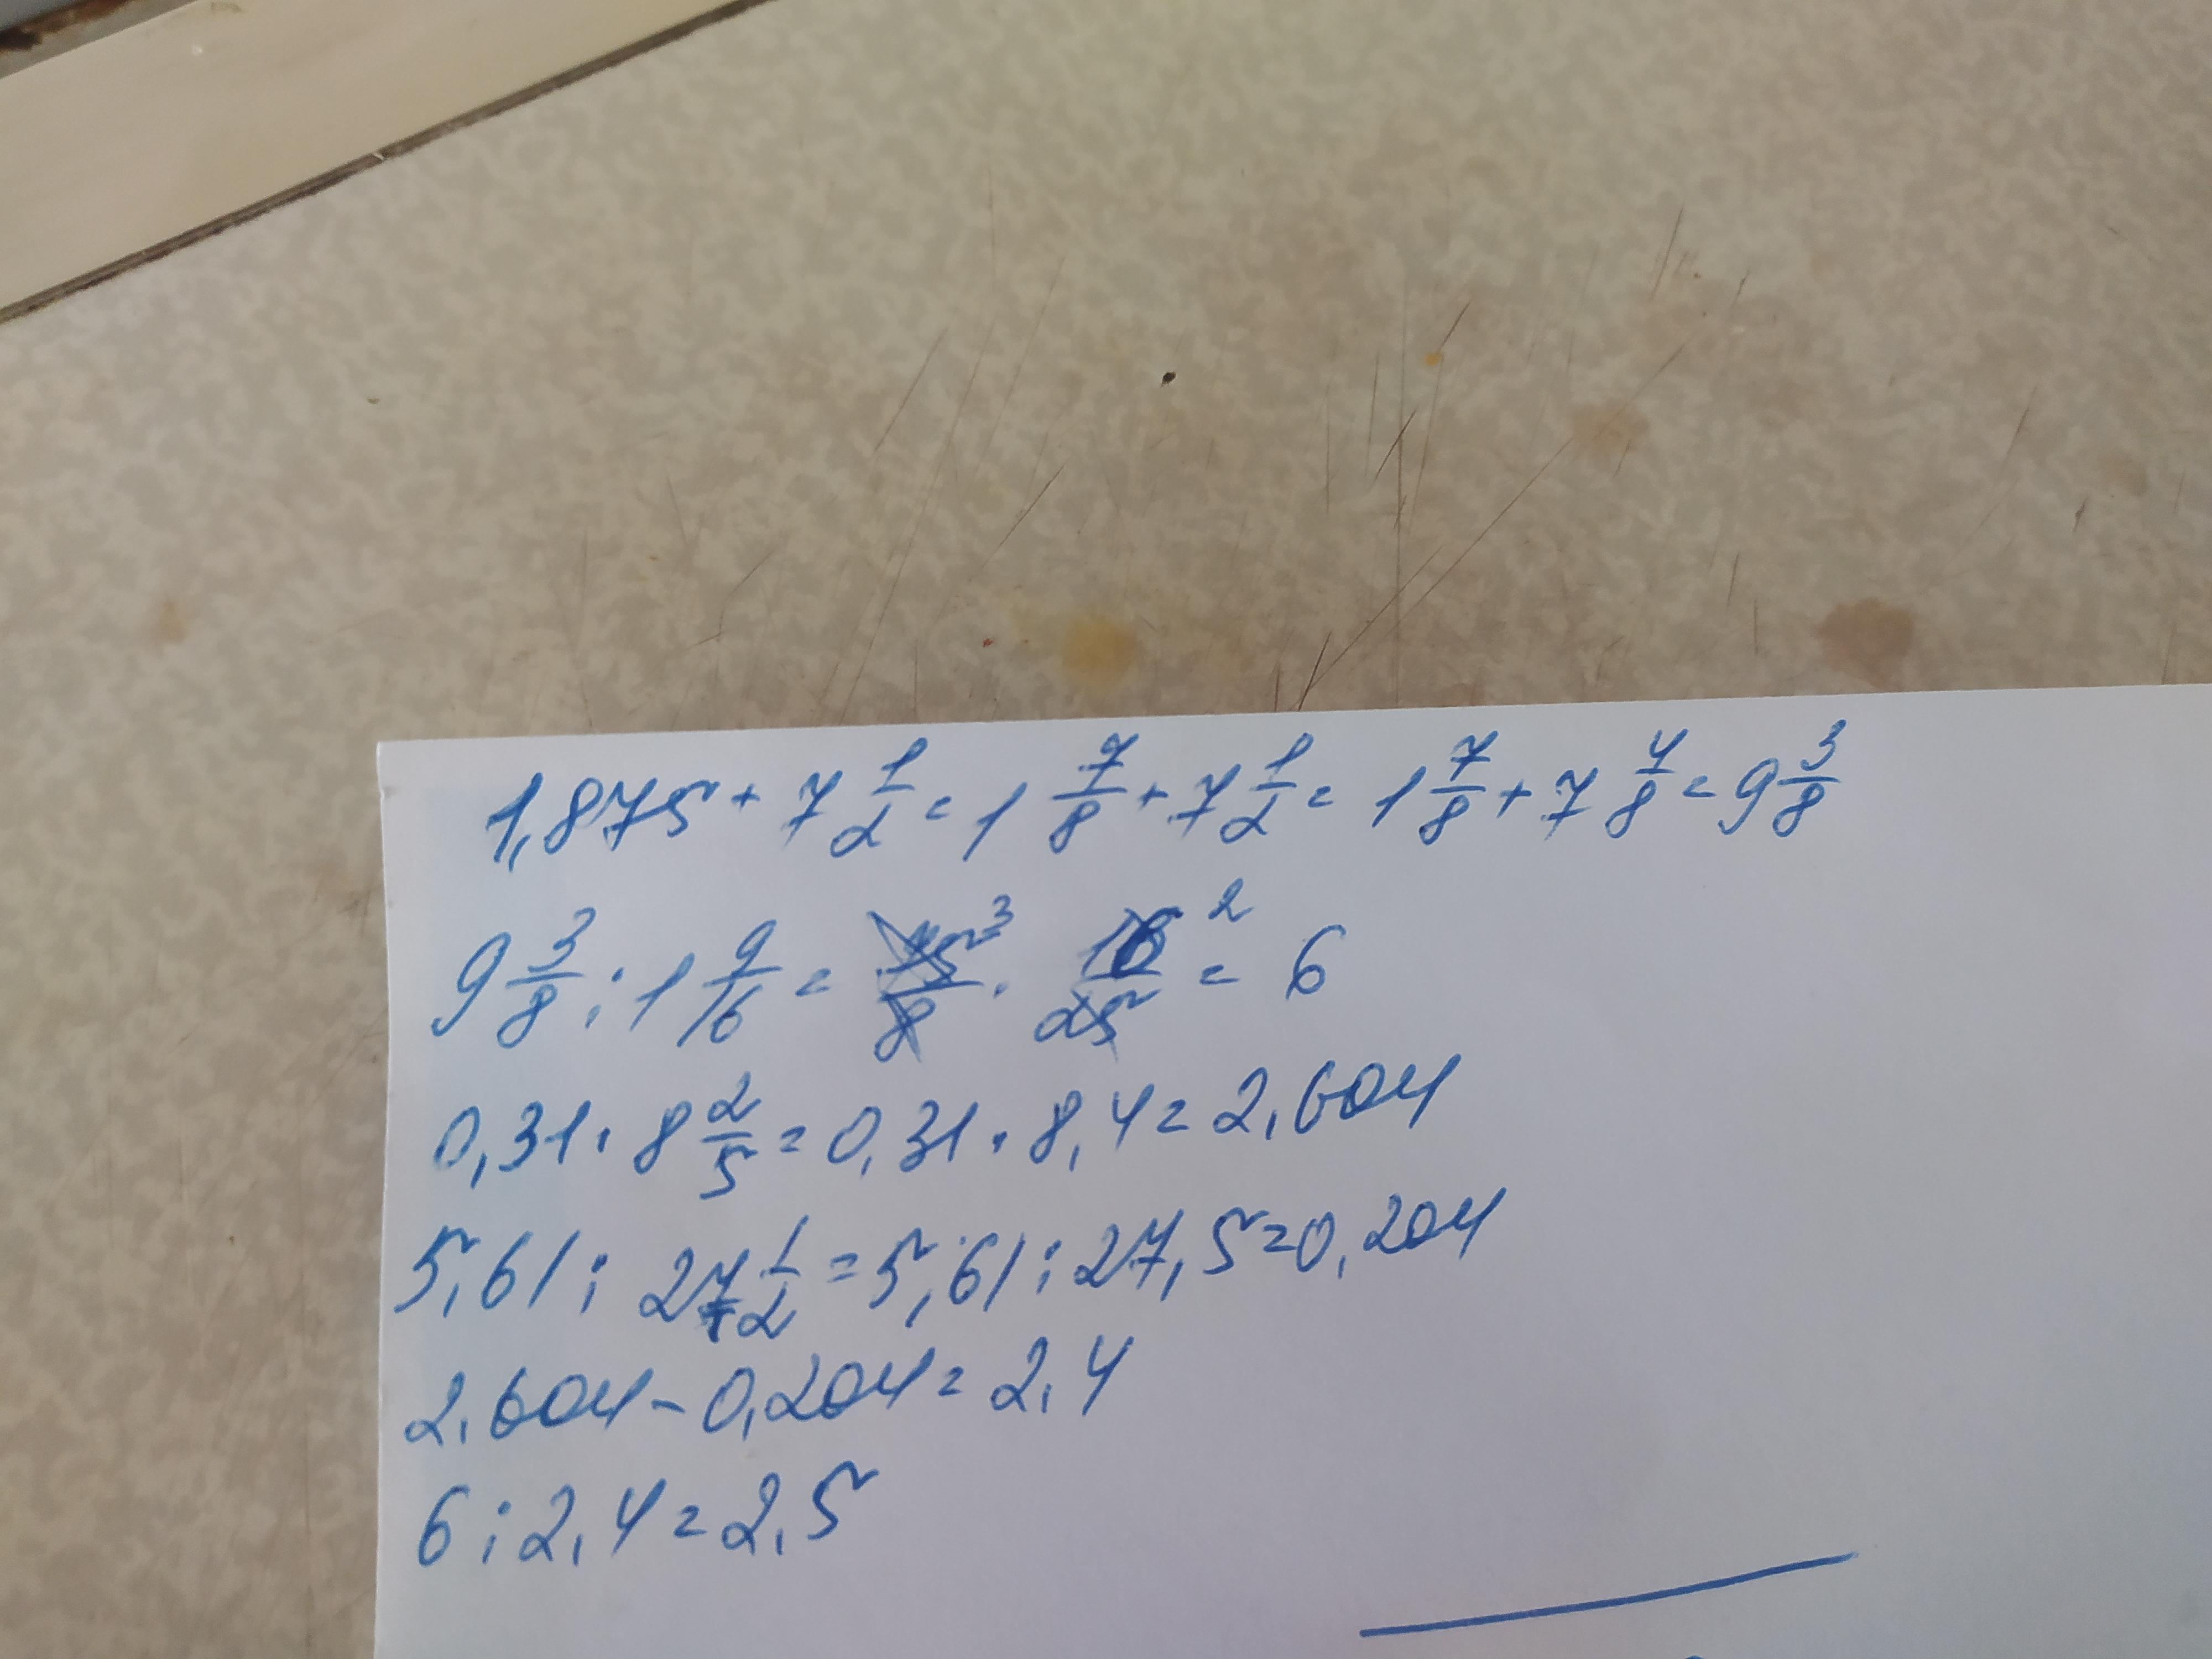 1,875 + 7 1/2 = 1 7/8 + 7 1/2 = 1 7/8 + 7 4/8 = 9 3/8
9 3/8 : 1 9/16 = 75/8 3 · 16/25 2 = 6
0,31 · 8 2/5 = 0,31 · 8,4 = 2,604
5,61 : 27 1/2 = 5,61 : 27,5 = 0,204
2,604 - 0,204 = 2,4
6 : 2,4 = 2,5